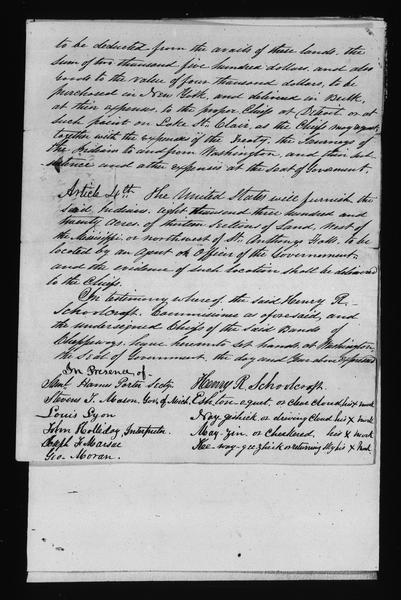 to be deducted from the avails of these lands, the
sum of two thousand five hundred dollars, and also
Goods to the value of four thousand dollars, to be
purchased in New York, and delivered in Bulk,
at their expense, to the proper Chiefs at Detroit, or at
such point on Lake St. Clair, as the Chiefs may request,
together with the expenses of the Treaty, the Journeys of
the Indians to and from Washington, and their sub-
sistence and other expenses at the Seat of Government.
Article 4th. The United States will furnish the
said Indians, eight thousand three hundred and
twenty acres, or thirteen sections of Land, West of
the Mississippi, or northwest of St. Anthonys Falls, to be
located by an Agent or Officer of the Government
and the evidence of such location shall be delivered
to the Chiefs.
In testimony whereof, the said Henry R.
Schoolcraft, Commissioner as aforesaid, and
the undersigned Chiefs of the said Bands of
Chippeways, have hereunto set hands at Washington
the Seat of Government, the day and year above expressed
In Presence of
Saml. Humes Porter Secty. Henry R. Schoolcraft.
Stevens T. Mason, Gov. of Mich. Esh-ton-o-quet, or Clear Cloud his x mark
Lucius Lyon Nay-gishick or driving Cloud his x mark
John Holliday, Interpreter May-zin or Checkered his x mark
Joseph F. Marsac Kee-way-gee-zhick or returning Sky his x mark
Geo. Moran.